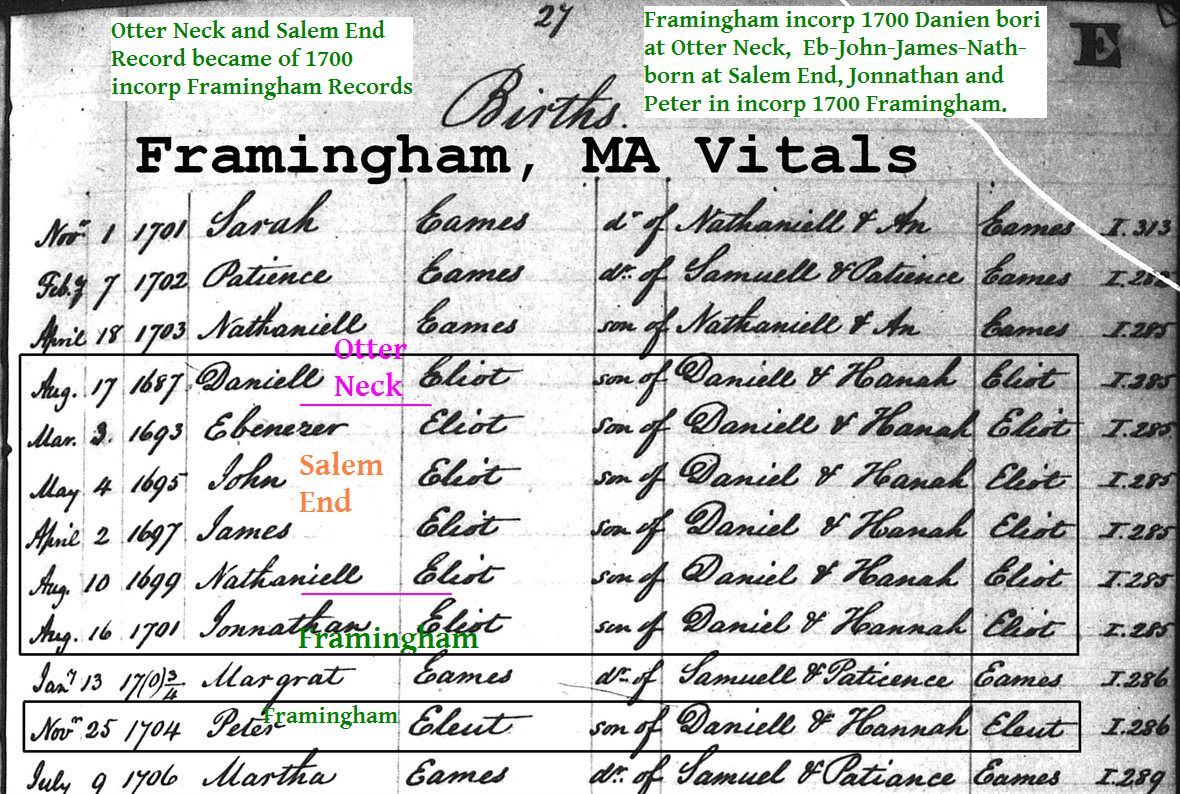 27
Otter Neck and Salem End
Record became of 1700
incorp Framingham Records
Framingham incorp 1700 Danien bori
at Otter Neck, Eb-John-James-Nath-
born at Salem End, Jonnathan and
Peter in incorp 1700 Framingham.
E
Births.
Framingham, MA Vitals
Novr 1 1701 Sarah Eames dr of Nathaniell & An Eames I.313
Feb.y 7 1702 Patience Eames dr. of Samuell & Patience Eames I.282
April 18 1703 Nathaniell Eames son of Nathaniell & An Eames I.285
Otter
Neck
Aug. 17 1687 Daniell Eliot son of Daniell & Hanah Eliot I.285
Mar. 3. 1693 Ebenezer Eliot son of Daniell & Hanah Eliot I.285
Salem
End
May 4 1695 John Eliot son of Daniel & Hanah Eliot I.285
April 2 1697 James Eliot son of Daniel & Hanah Eliot I.285
Aug. 10 1699 Nathaniell Eliot son of Daniel & Hanah Eliot I.285
Aug. 16 1701 Jonnathan Eliot son of Daniel & Hannah Eliot I.285
Framingham
Jany 13 17(0)3/4 Margrat Eames dr. of Samuell & Paticence Eames I.286
Framingham
Novr 25 1704 Peter Eleut son of Daniell & Hannah Eleut I.286
July 9 1706 Martha Eames dr. of Samuel & Patiance Eames I.289